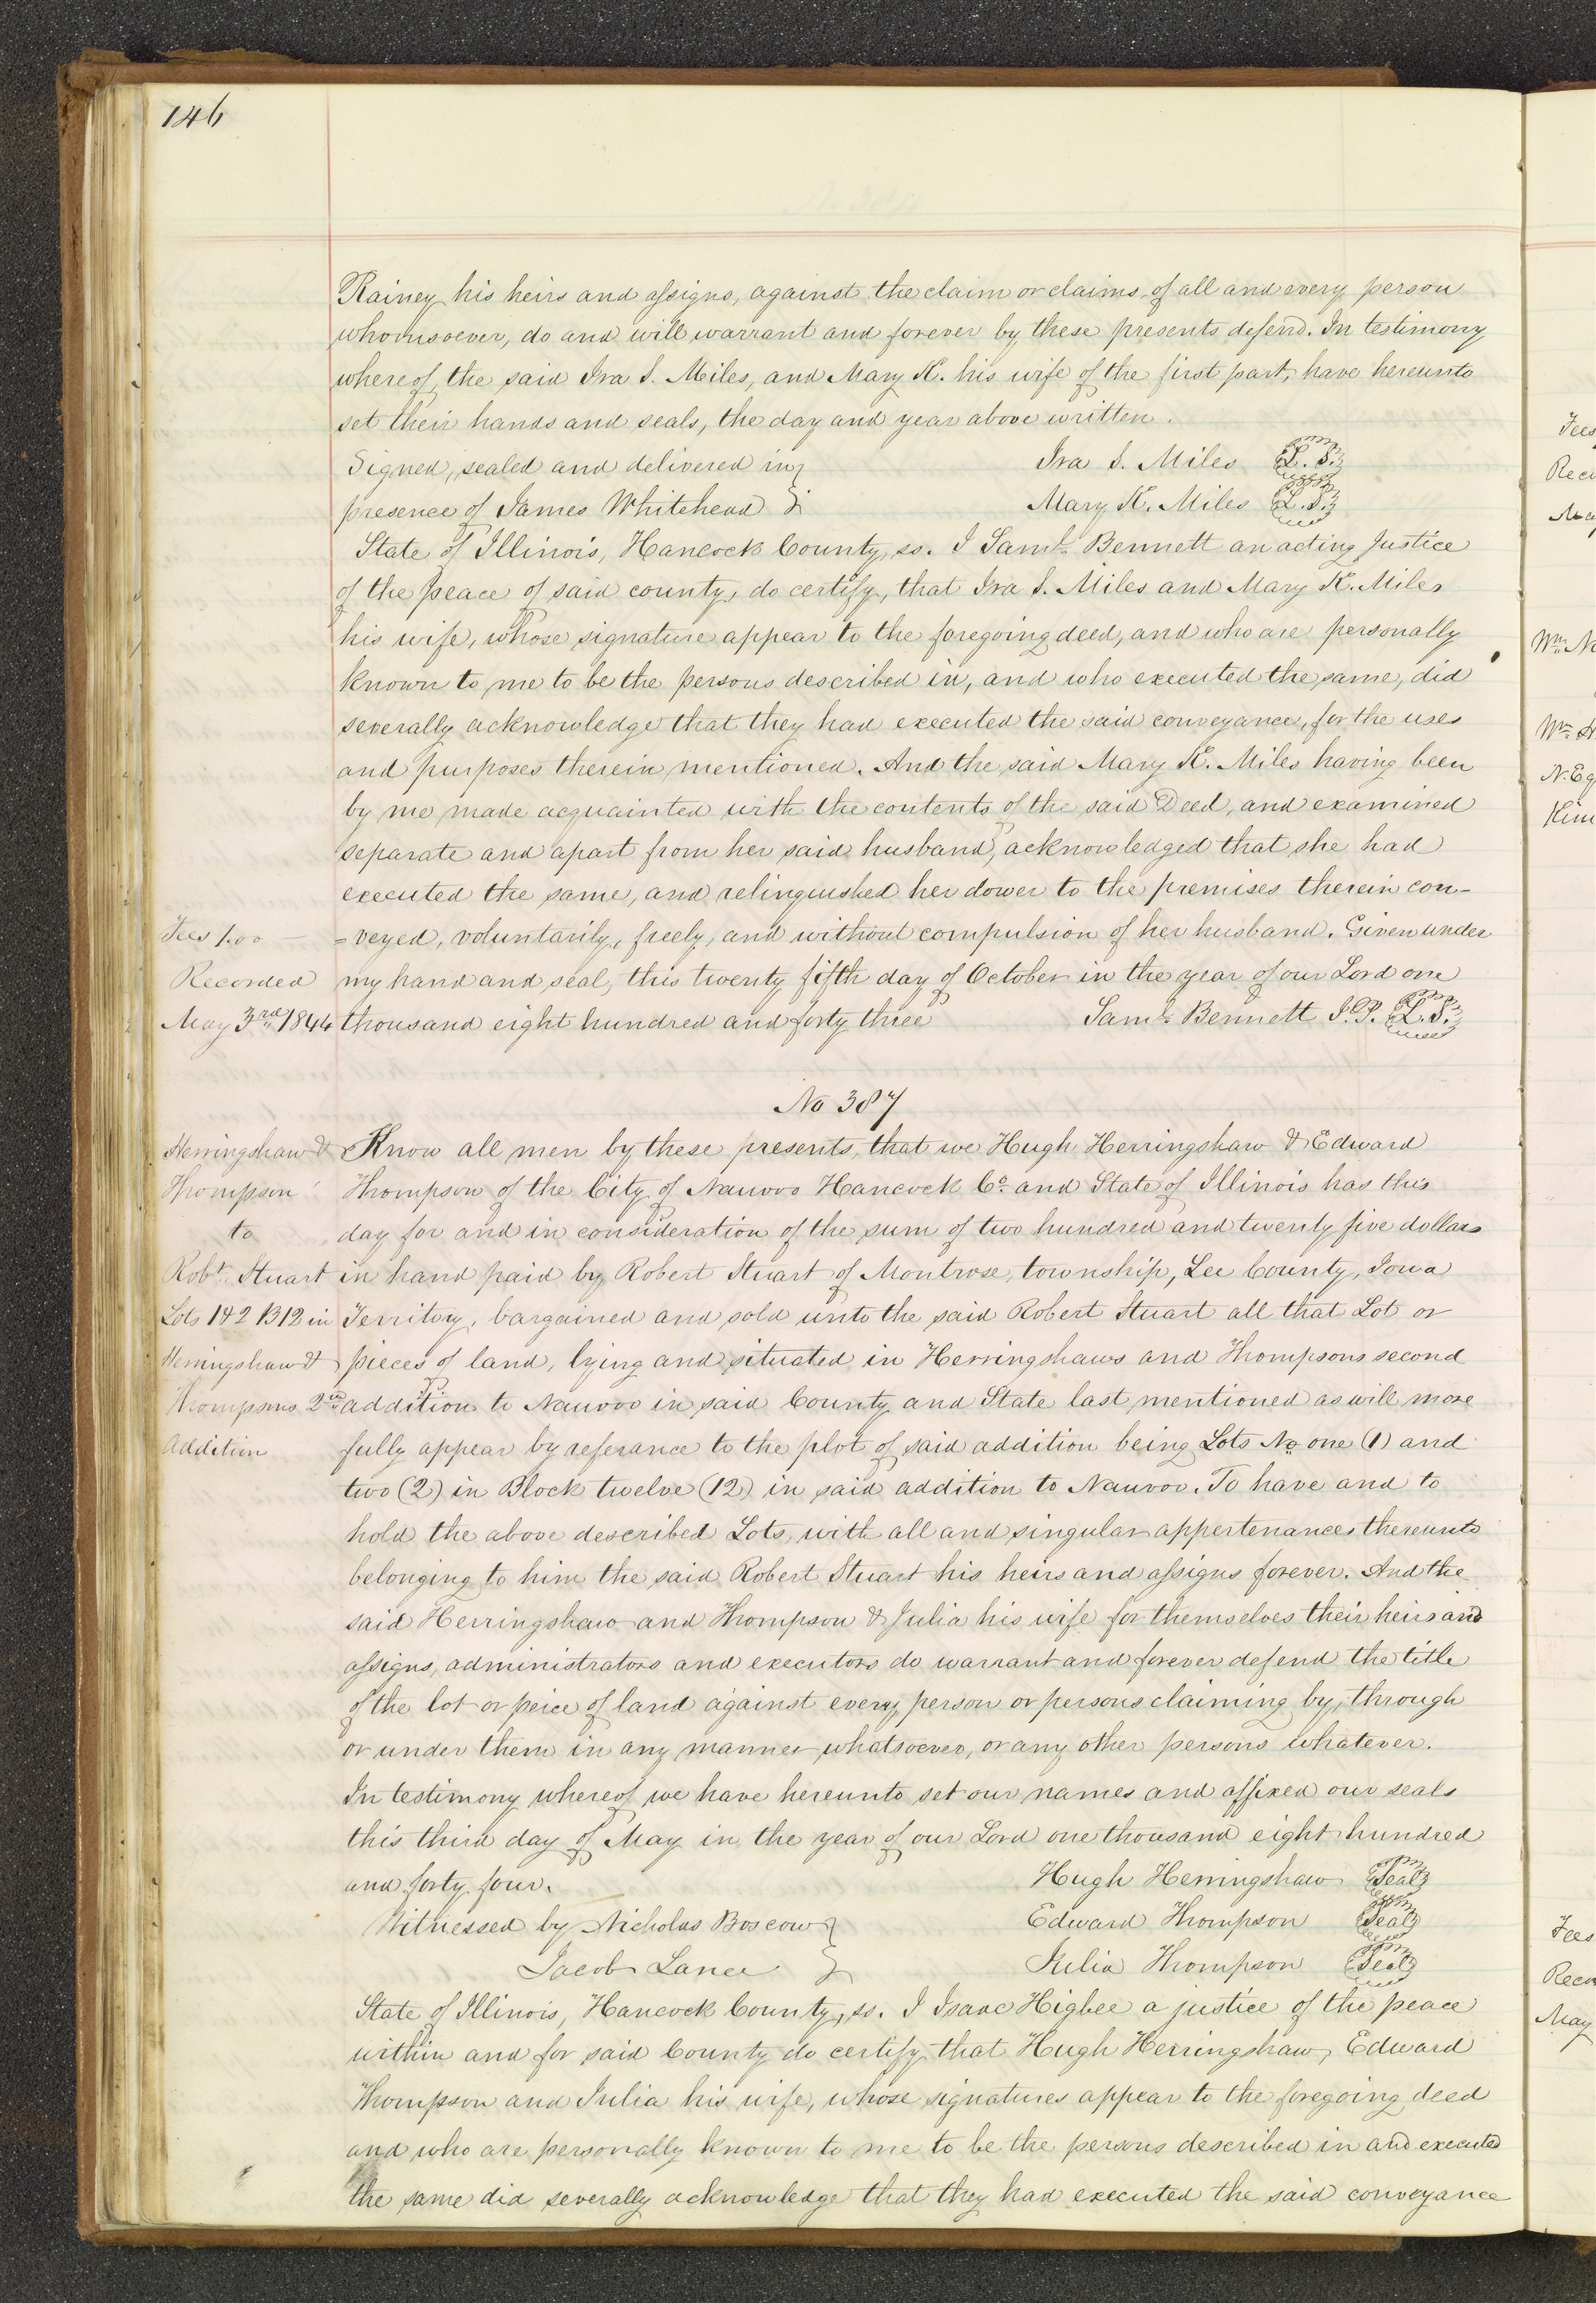 146
Rainey his heirs and assigns, against the claim or claims of all and every person
whomsoever, do and will warrant and forever by these presents defend. In testimony
whereof, the said Ira S. Miles, and Mary K. his wife of the first part, have hereunto
set their hands and seals, the day and year above written.
Signed, sealed and delivered in } Ira S. Miles L. S.
presence of James Whitehead } Mary K. Miles L.S.
State of Illinois, Hancock County, ss. I Saml. Bennett an acting Justice
of the peace of said county, do certify, that Ira S. Miles and Mary K. Miles
his wife, whose signature appear to the foregoing deed, and who are personally
known to me to be the persons described in, and who executed the same, did
severally acknowledge that they had executed the said conveyance, for the uses
and purposes therein mentioned. And the said Mary K. Miles having been
by me made acquainted with the contents of the said Deed, and examined
separate and apart from her said husband, acknowledged that she had
executed the same, and relinquished her dower to the premises therein con-
Fees 1.00 =veyed, voluntarily, freely, and without compulsion of her husband. Given under
Recorded my hand and seal, this twenty fifth day of October in the year of our Lord one
May 3rd 1844 thousand eight hundred and forty three Saml. Bennett J.P. L.S.
No 387
Herringshaw & Know all men by these presents, that we Hugh Herringshaw & Edward
Thompson Thompson of the City of Nauvoo Hancock Co. and State of Illinois has this
to day for and in consideration of the sum of two hundred and twenty five dollars
Robt. Stuart in hand paid by Robert Stuart of Montrose, township, Lee County, Iowa
Lots 1&2 B12 in Territory, bargained and sold unto the said Robert Stuart all that Lot or
Herringshaw & pieces of land, lying and situated in Herringshaws and Thompsons second
Thompsons 2nd addition to Nauvoo in said County and State last mentioned as will more
Addition fully appear by referance to the plot of said addition being Lots No one (1) and
two (2) in Block twelve (12) in said addition to Nauvoo. To have and to
hold the above described Lots, with all and singular appertenances thereunto
belonging to him the said Robert Stuart his heirs and assigns forever. And the
said Herringshaw and Thompson & Julia his wife for themselves their heirs and
assigns, administrators and executors do warrant and forever defend the title
of the lot or peice of land against every person or persons claiming by, through
or under them in any manner whatsoever, or any other persons whatever.
In testimony whereof we have hereunto set our names and affixed our seals
this third day of May in the year of our Lord one thousand eight hundred
and forty four. Hugh Herringshaw Seal
Witnessed by Nicholas Boscow } Edward Thompson Seal
Jacob Lance } Julia Thompson Seal
State of Illinois, Hancock County, ss. I Isaac Higbee a justice of the peace
within and for said County do certify that Hugh Herringshaw, Edward
Thompson and Julia his wife, whose signatures appear to the foregoing deed
and who are personally known to me to be the persons described in and executed
the same did severally acknowledge that they had executed the said conveyance